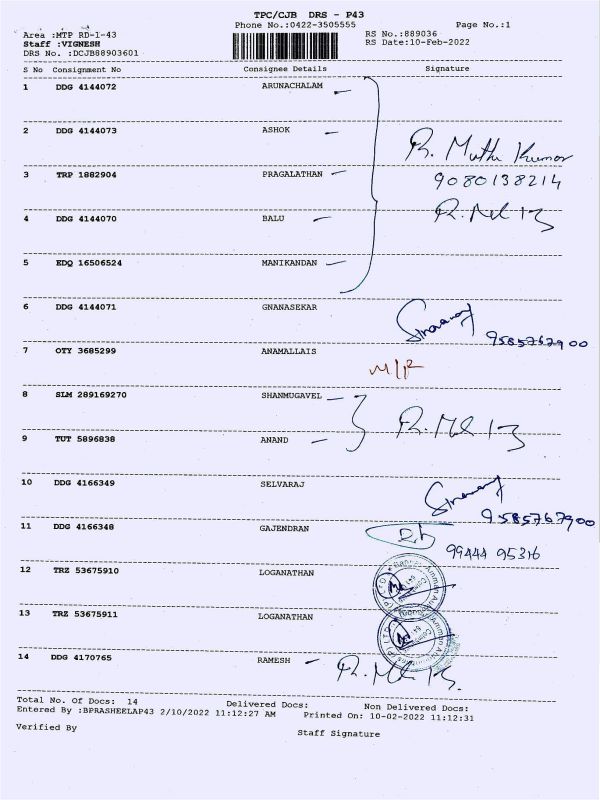 TPC/CJB DRS - P43
Phone No.:0422-3505555 Page No.:1
Area :MTP RD-1-43 RS No.:889036
Staff :VIGNESH RS Date:10-Feb-2022
DRS No. :DCJB88903601
S No Consignment No Consignee Details Signature
1 DDG 4144072 ARUNACHALAM
2 DDG 4144073 ASHOK
R. Muthu Kumar
3 TRP 1882904 PRAGALATHAN 9080138214
4 DDG 4144070 BALU
5 EDQ 16506524 MANIKANDAN
6 DDG 4144071 GNANASEKAR
9585767900
7 OTY 3685299 ANAMALLAIS
8 SLM 289169270 SHANMUGAVEL
9 TUT 5896838 ANAND
10 DDG 4166349 SELVARAJ
9585767900
11 DDG 4166348 GAJENDRAN
99444 95316
12 TRZ 53675910 LOGANATHAN
13 TRZ 53675911 LOGANATHAN
14 DDG 4170765 RAMESH
Total No. Of Docs: 14 Delivered Docs: Non Delivered Docs:
Entered By :BPRASHEELAP43 2/10/2022 11:12:27 AM Printed On: 10-02-2022 11:12:31
Verified By Staff Signature